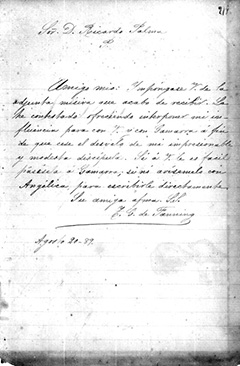 211
Sor. D. Ricardo Palma
P.
Amigo mio: Impóngase V. de la
adjunta misiva que acabo de recibir. La
he contestado ofreciendo interponer mi in-
fluencia para con V. y con Gamarra á fin
de que cese el desvelo de mi impresionable
y modesta discípula. Si á V. le es facil
pásesela á Gamarra; si no avísemelo con
Angélica para escribirle directamente.
Su amiga afma. SS.
T. G. de Fanning
Agosto 20-89.